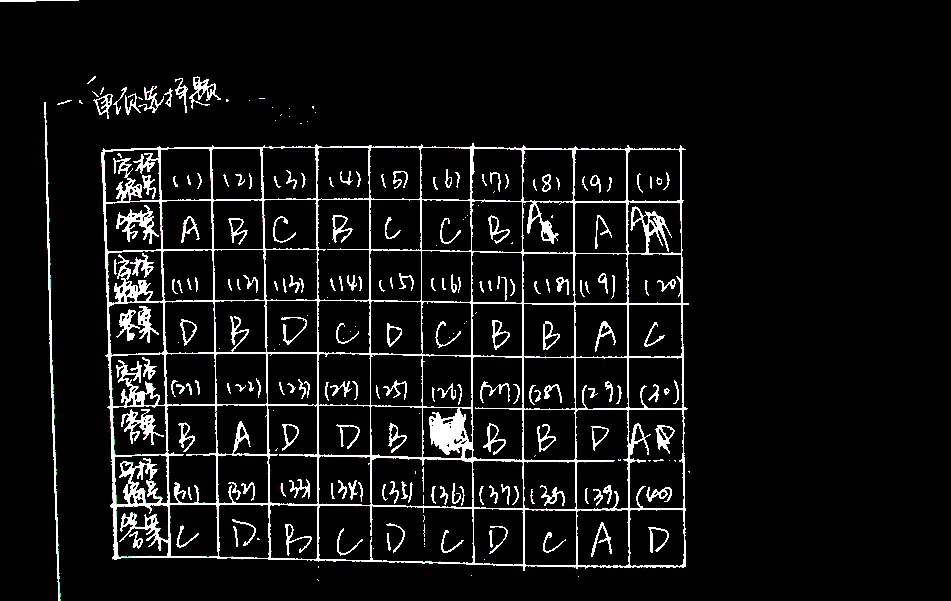 一、单项选择题.
空格编号 (1) (2) (3) (4) (5) (6) (7) (8) (9) (10)
答案 A B C B C C B A A A
空格编号 (11) (12) (13) (14) (15) (16) (17) (18) (19) (20)
答案 D B D C D C B B A C
空格编号 (21) (22) (23) (24) (25) (26) (27) (28) (29) (30)
答案 B A D D B B B D A
空格编号 (31) (32) (33) (34) (35) (36) (37) (38) (39) (40)
答案 C D B C D C D C A D